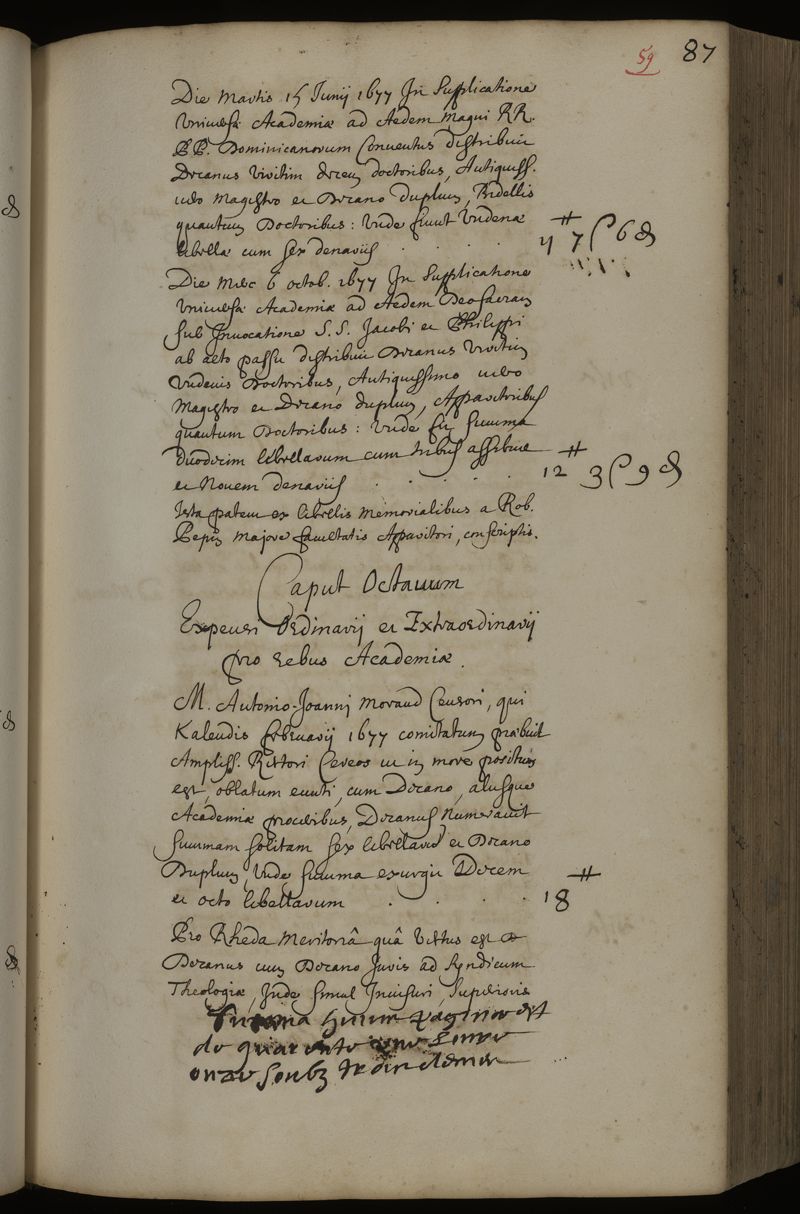 59 87
Die Martis 15 Junij 1677 Jn Supplicatione
Vniuersæ Academiæ ad Aedem Magni RR.
PP. Dominicanorum Conuentus distribuit
Decanus Viritim decem doctoribus, Antiquiss.
uero Magistro et Decano duplum, Bidellis
quantum Doctoribus: Vnde sunt Vndenæ
libellæ cum sex denarijs . . . . . 11 ₶ 7 ʃ 6 d
Die Merc 6 octob. 1677 Jn Supplicatione
Vniuersæ Academiæ ad Aedem Deo sacram
sub Jnuocatione S.S. Jacobi et Philippi
ab alto passu distribuit Decanus Viritim
Vndenis Doctoribus, Antiquissimo uero
Magistro et Decano duplum, Apparitoribus
quantum Doctoribus: Vnde fit summa
duodecim libellarum cum tribus assibus
et Nouem denarijs . . . . . 12 ₶ 3 ʃ 9 d
Ista patent ex libellis memorialibus a Rob.
Pepin Majore facultatis Apparitori, conscriptis.
Caput Octauum
Expensi Ordinarij et Extraordinarij
pro rebus Academiæ.
M. Antonio-Joanni Moraud Censori, qui
Kalendis februarij 1677 comitatum præbuit
Ampliss. Rectori Cereos ut in more positum
est, oblatum eunti, cum Decano, alijsque
Academiæ proceribus, Decanus Numerauit
summam solitam sex libellarum et Decano
Duplum, Vnde summa exurgit Decem
et octo libellarum . . . . 18 ₶
Pro Rheda Meritoriâ quâ Vectus est
Decanus cum Decano Juris ad Syndicum
Theologiæ, Jnde simul Jnuisuri, Superioris
Summa huius paginæ est
de quarante une liure
onze soubz trois deniers